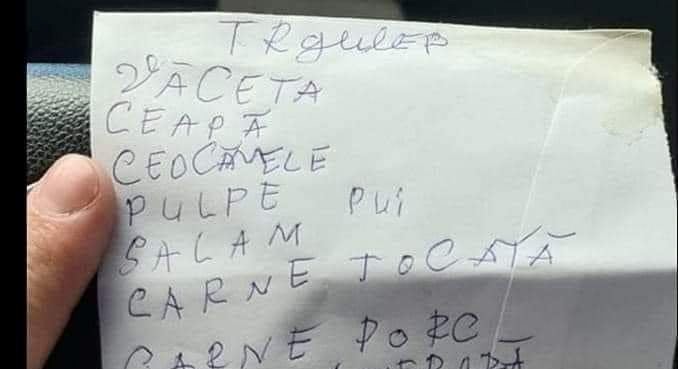 TRguleP
VĂCETA
CEAPĂ
CEOCĂNELE
PULPE PUI
SALAM
CARNE TOCATĂ
CARNE PORC